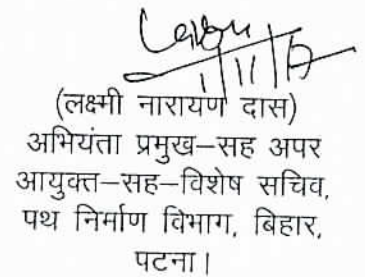 1/11/17
(लक्ष्मी नारायण दास)
अभियंता प्रमुख–सह अपर
आयुक्त–सह–विशेष सचिव,
पथ निर्माण विभाग, बिहार,
पटना।